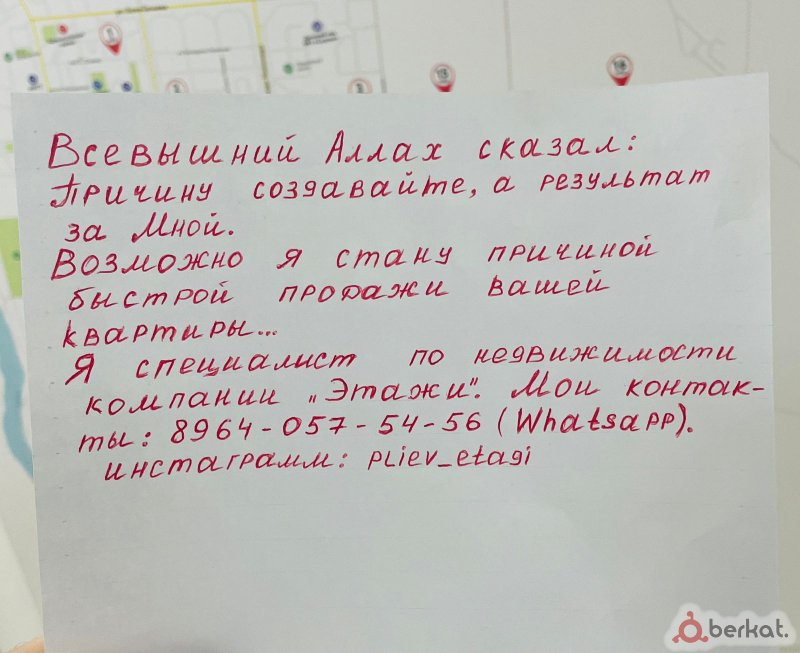 Всевышний Аллах сказал:
Причину создавайте, а результат
за Мной.
Возможно я стану причиной
быстрой продажи вашей
квартиры...
Я специалист по недвижимости
компании „Этажи". Мои контак-
ты: 8964-057-54-56 (Whatsapp).
инстаграмм: pliev_etagi
1
13
14
berkat.